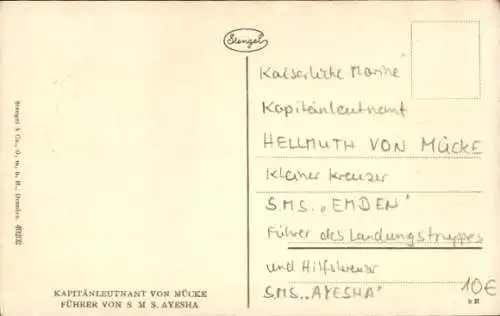 Stengel
Kaiserliche Marine
Kapitänleutnant
HELLMUTH VON MÜCKE
Kleiner Kreuzer
S.M.S. „EMDEN"
Führer des Landungstruppes
und Hilfskreuzer
S.M.S. „AYESHA"
10€
Stengel & Co., G. m. b. H., Dresden.
KAPITÄNLEUTNANT VON MÜCKE
FÜHRER VON S M S. AYESHA